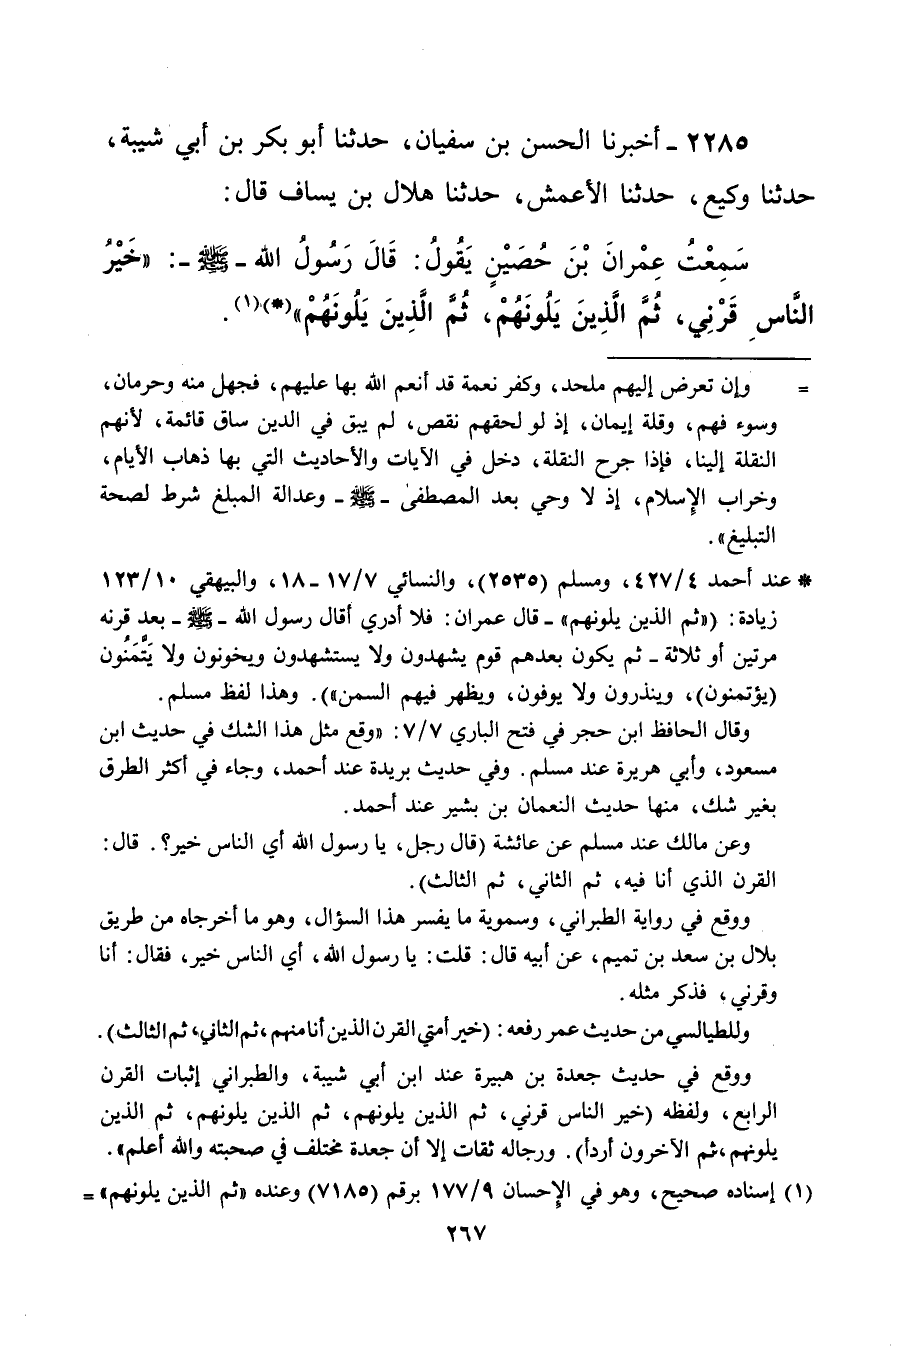 ٢٢٨٥ ـ أخبرنا الحسن بن سفيان، حدثنا أبو بكر بن أبي شيبة،
حدثنا وكيع، حدثنا الأعمش، حدثنا هلال بن يساف قال:
سَمِعْتُ عِمْرانَ بْنَ حُصَيْنٍ يَقُولُ: قَالَ رَسُولُ الله ـ ﷺ ـ: «خَيْرُ
النَّاسِ قَرْنِي، ثُمَّ الَّذِينَ يَلُونَهُمْ، ثُمَّ الَّذِينَ يَلُونَهُمْ»(*)(١).
= وإن تعرض إليهم ملحد، وكفر نعمة قد أنعم الله بها عليهم، فجهل منه وحرمان،
وسوء فهم، وقلة إيمان، إذ لو لحقهم نقص، لم يبق في الدين ساق قائمة، لأنهم
النقلة إلينا، فإذا جرح النقلة، دخل في الآيات والأحاديث التي بها ذهاب الأيام،
وخراب الإسلام، إذ لا وحي بعد المصطفىٰ ـ ﷺ ـ وعدالة المبلغ شرط لصحة
التبليغ».
* عند أحمد ٤٢٧/٤، ومسلم (٢٥٣٥)، والنسائي ١٧/٧ ـ ١٨، والبيهقي ١٢٣/١٠
زيادة: («ثم الذين يلونهم» ـ قال عمران: فلا أدري أقال رسول الله ـ ﷺ ـ بعد قرنه
مرتين أو ثلاثة ـ ثم يكون بعدهم قوم يشهدون ولا يستشهدون ويخونون ولا يَتَّمَنُون
(يؤتمنون)، وينذرون ولا يوفون، ويظهر فيهم السمن»). وهذا لفظ مسلم.
وقال الحافظ ابن حجر في فتح الباري ٧/٧: «وقع مثل هذا الشك في حديث ابن
مسعود، وأبي هريرة عند مسلم. وفي حديث بريدة عند أحمد، وجاء في أكثر الطرق
بغير شك، منها حديث النعمان بن بشير عند أحمد.
وعن مالك عند مسلم عن عائشة (قال رجل، يا رسول الله أي الناس خير؟. قال:
القرن الذي أنا فيه، ثم الثاني، ثم الثالث).
ووقع في رواية الطبراني، وسموية ما يفسر هذا السؤال، وهو ما أخرجاه من طريق
بلال بن سعد بن تميم، عن أبيه قال: قلت: يا رسول الله، أي الناس خير، فقال: أنا
وقرني، فذكر مثله.
وللطيالسي من حديث عمر رفعه: (خير أمتي القرن الذين أنا منهم، ثم الثاني، ثم الثالث).
ووقع في حديث جعدة بن هبيرة عند ابن أبي شيبة، والطبراني إثبات القرن
الرابع، ولفظه (خير الناس قرني، ثم الذين يلونهم، ثم الذين يلونهم، ثم الذين
يلونهم، ثم الآخرون أردأ). ورجاله ثقات إلا أن جعدة مختلف في صحبته والله أعلم».
(١) إسناده صحيح، وهو في الإحسان ١٧٧/٩ برقم (٧١٨٥) وعنده «ثم الذين يلونهم» =
٢٦٧